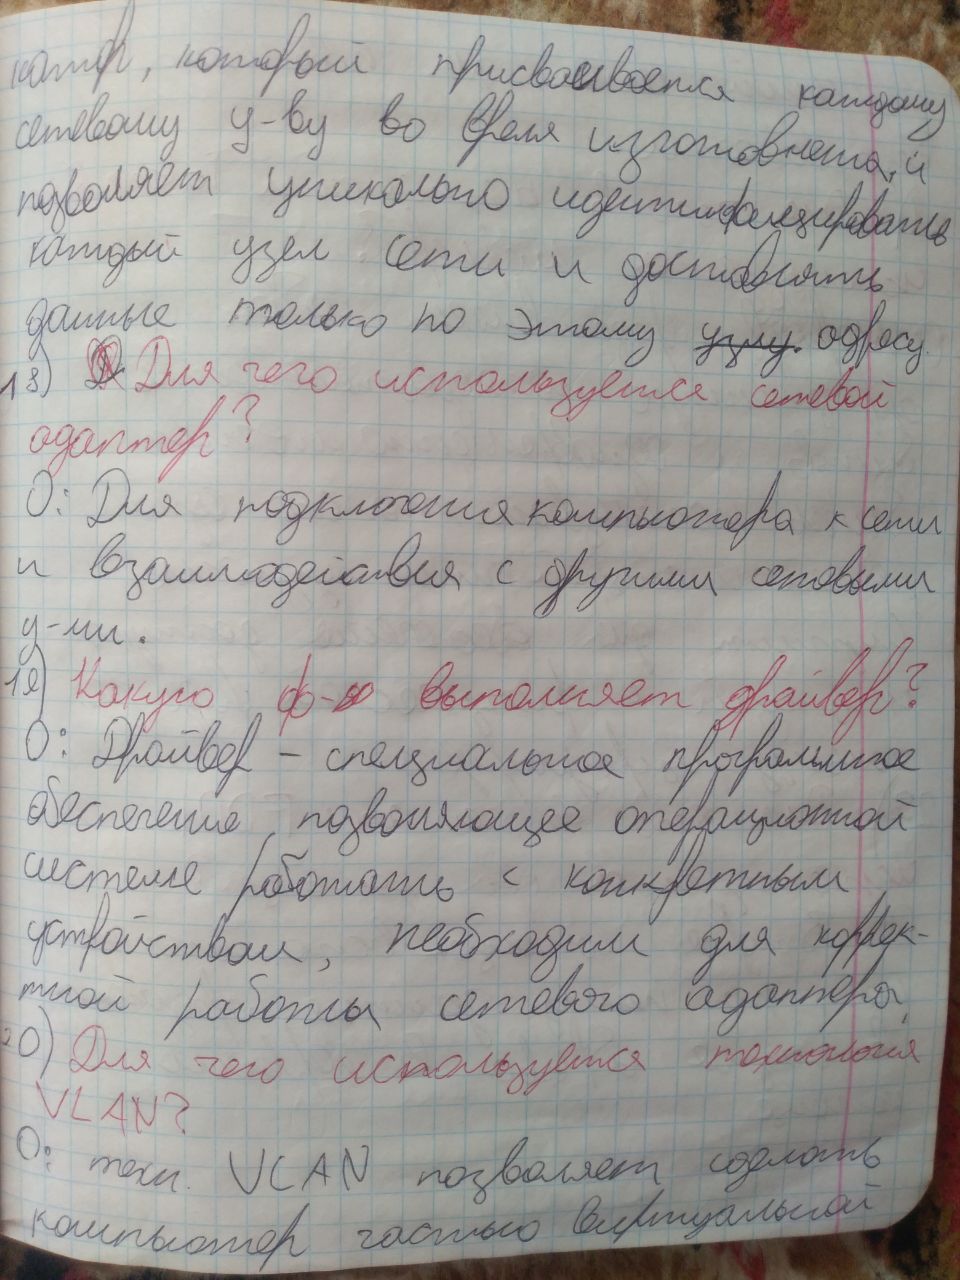 катор, который присваивается каждому
сетевому у-ву во время изготовления, и
позволяет уникально идентифицировать
каждый узел сети и доставлять
данные только по этому узлу. адресу.
18) Для чего используется сетевой
адаптер?
О: Для подключения компьютера к сети
и взаимодействия с другими сетевыми
у-ми.
19) Какую ф-ю выполняет драйвер?
О: Драйвер – специальное программное
обеспечение, позволяющее операционной
системе работать с конкретным
устройством, необходим для коррек-
тной работы сетевого адаптера.
20) Для чего используется технология
VLAN?
О: техн. VLAN позволяет сделать
компьютер частью виртуальной